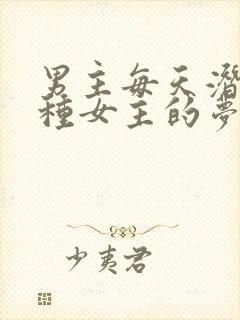 男主每天潛
種女主的夢
少夷君